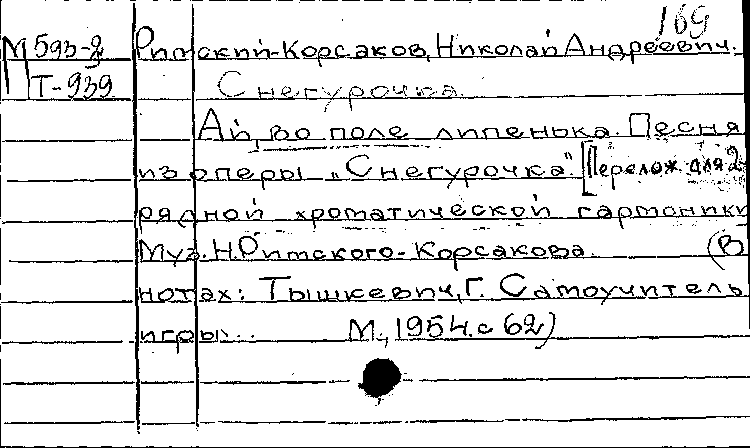 169
М 593-2 Римский-Корсаков, Николай Андреевич.
Т-939 Снегурочка.
Ай, во поле липенька. Песня
из оперы „Снегурочка". [Перелож. для 2-
рядной хроматической гармоники
Муз. Н. Римского-Корсакова. (В
нотах: Тышкевич, Г. Самоучитель
игры... М., 1954. с 62)